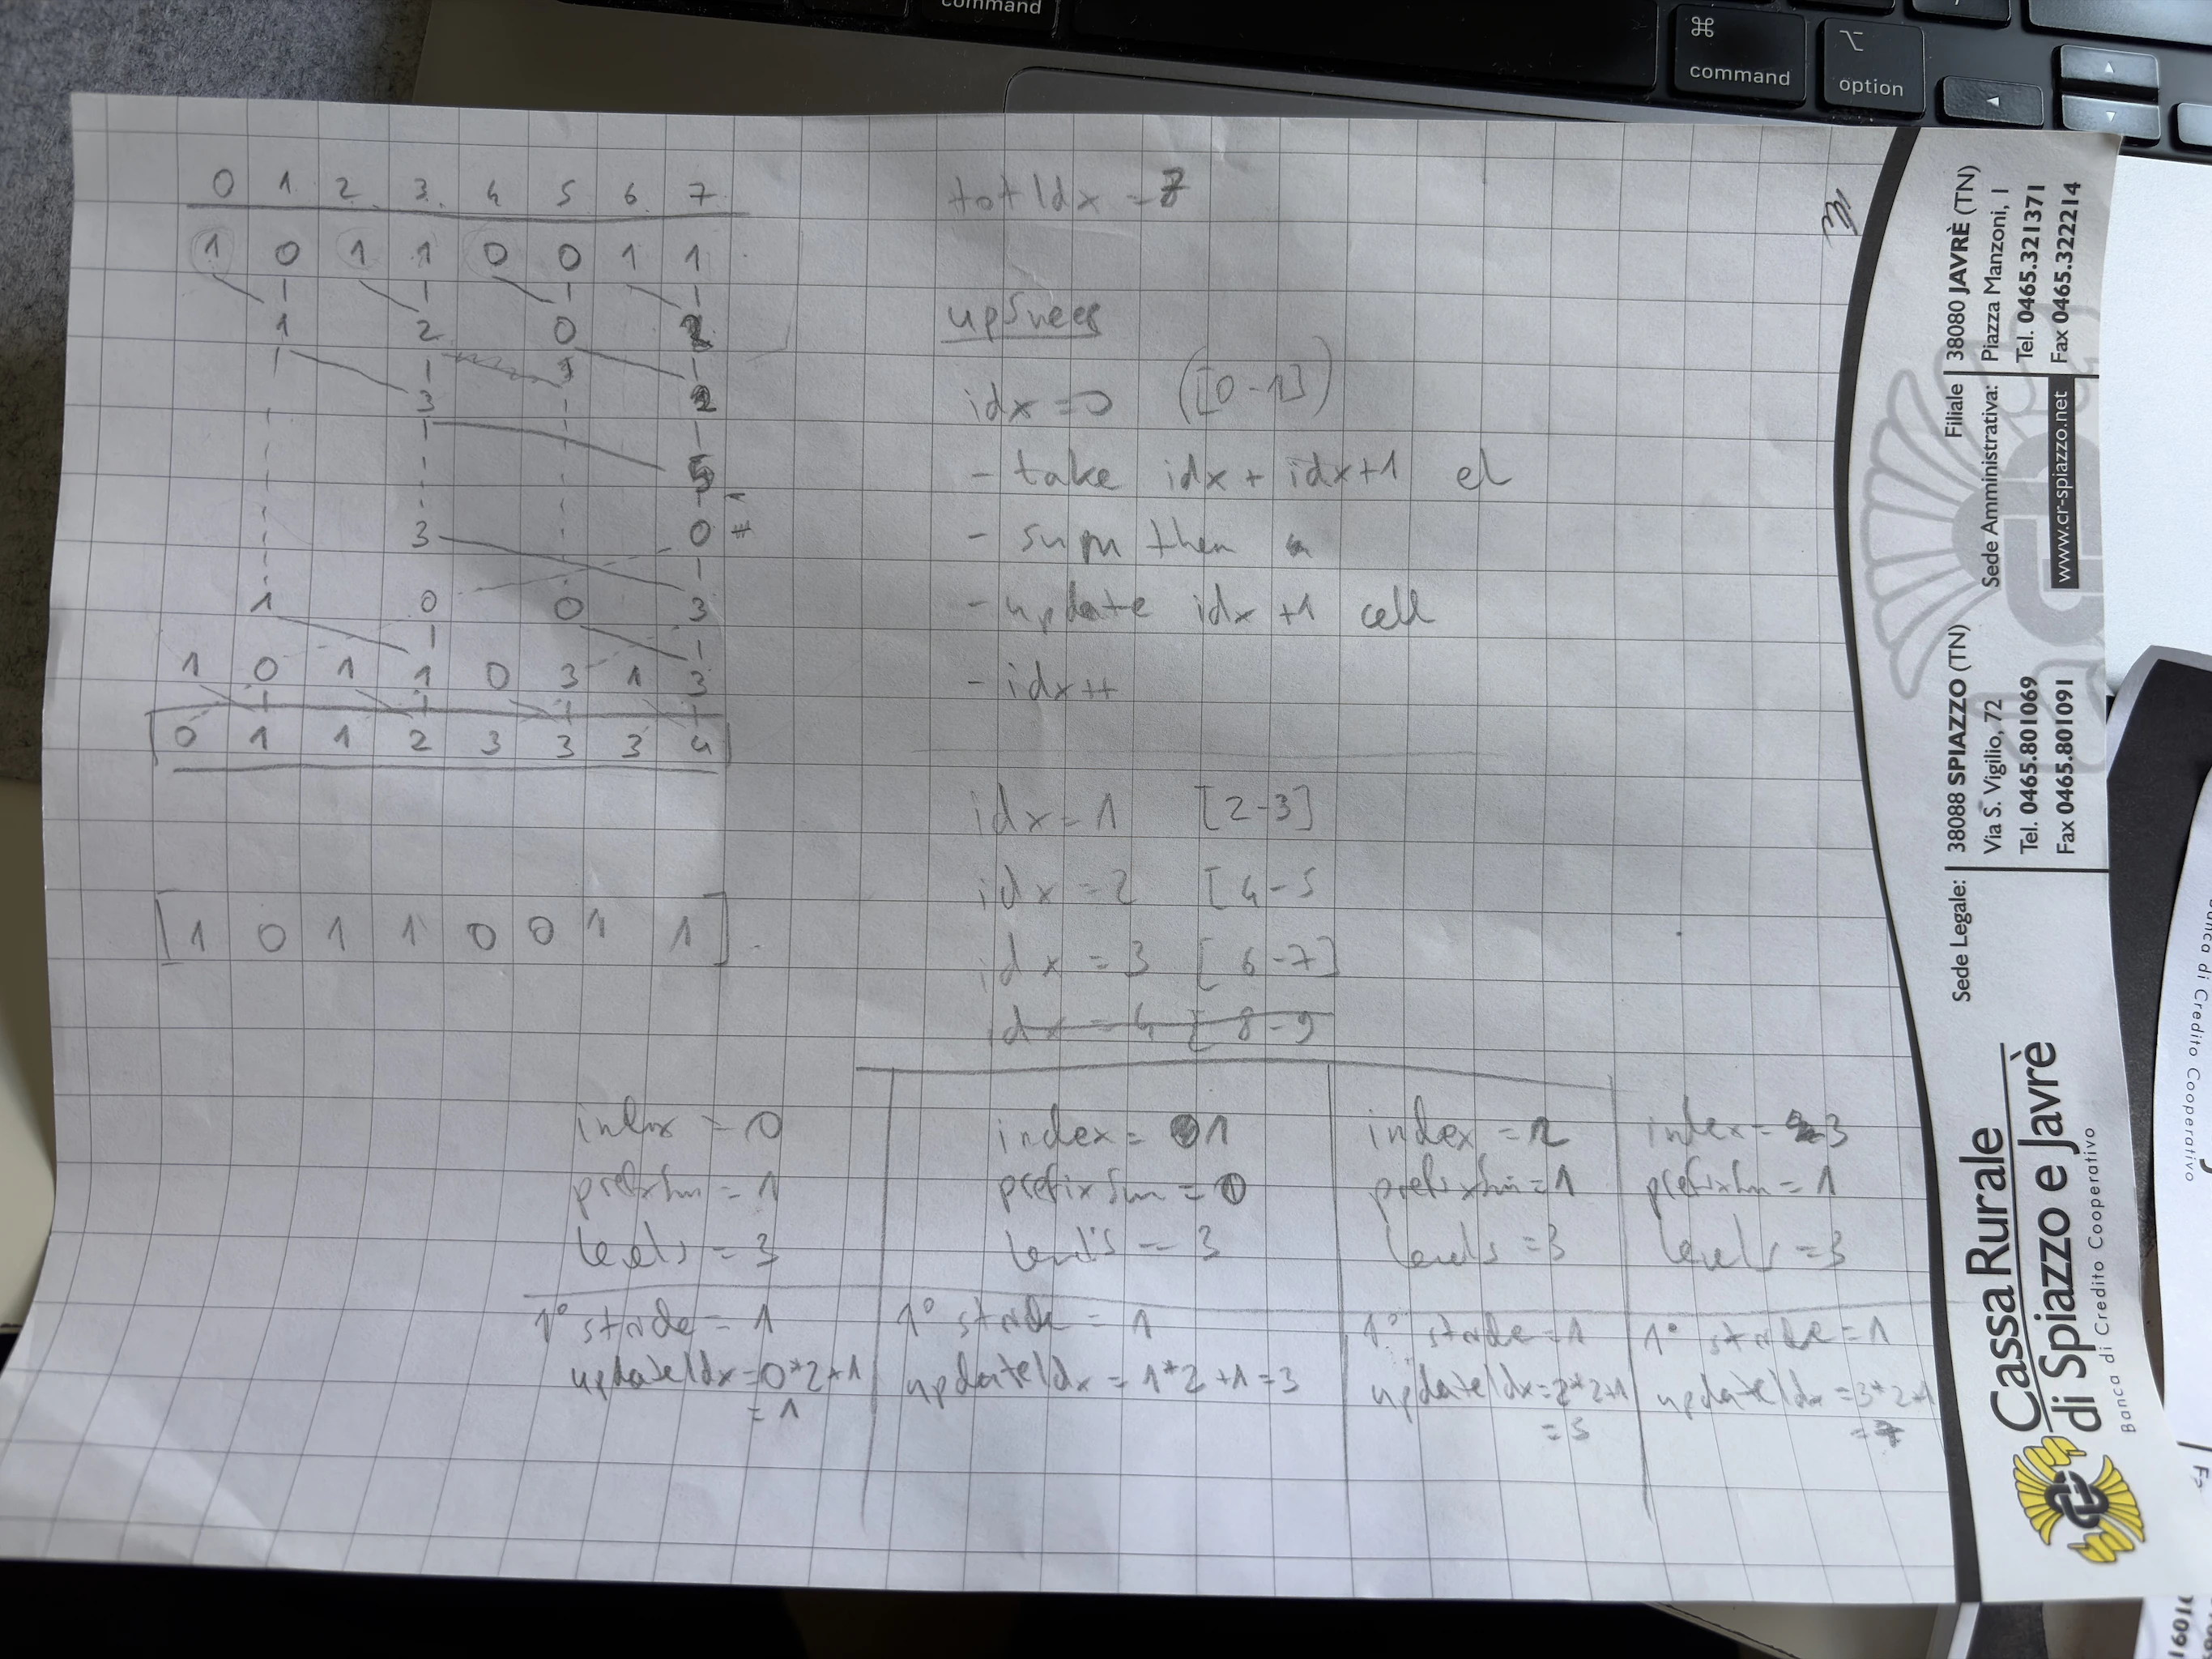 command
⌘
command
⌥
option
◄
▲
▼
0 1 2 3 4 5 6 7
1 0 1 1 0 0 1 1
1 2 0 2
3 2
5
3 0 #
1 0 0 3
1 0 1 1 0 3 1 3
0 1 1 2 3 3 3 4
[1 0 1 1 0 0 1 1]
totIdx = 8
upSweep
idx = 0 ([0-1])
- take idx + idx+1 el
- sum them
- update idx +1 cell
- idx++
idx = 1 [2-3]
idx = 2 [4-5
idx = 3 [6-7]
idx = 4 [8-9
index = 0
prefixSum = 1
levels = 3
1° stride = 1
updateIdx = 0*2+1
= 1
index = 1
prefixSum = 0
levels = 3
1° stride = 1
updateIdx = 1*2+1 = 3
index = 2
prefixSum = 1
levels = 3
1° stride = 1
updateIdx = 2*2+1
= 5
index = 3
prefixSum = 1
levels = 3
1° stride = 1
updateIdx = 3*2+1
= 7
Cassa Rurale
di Spiazzo e Javrè
Banca di Credito Cooperativo
Sede Legale:
38088 SPIAZZO (TN)
Via S. Vigilio, 72
Tel. 0465.801069
Fax 0465.801091
Filiale
Sede Amministrativa:
38080 JAVRÈ (TN)
Piazza Manzoni, 1
Tel. 0465.321371
Fax 0465.322214
www.cr-spiazzo.net
di Credito Cooperativo